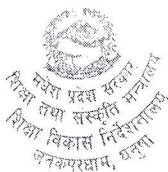 मधेश प्रदेश सरकार
शिक्षा तथा संस्कृति मन्त्रालय
शिक्षा विकास निर्देशनालय
जनकपुरधाम, धनुषा